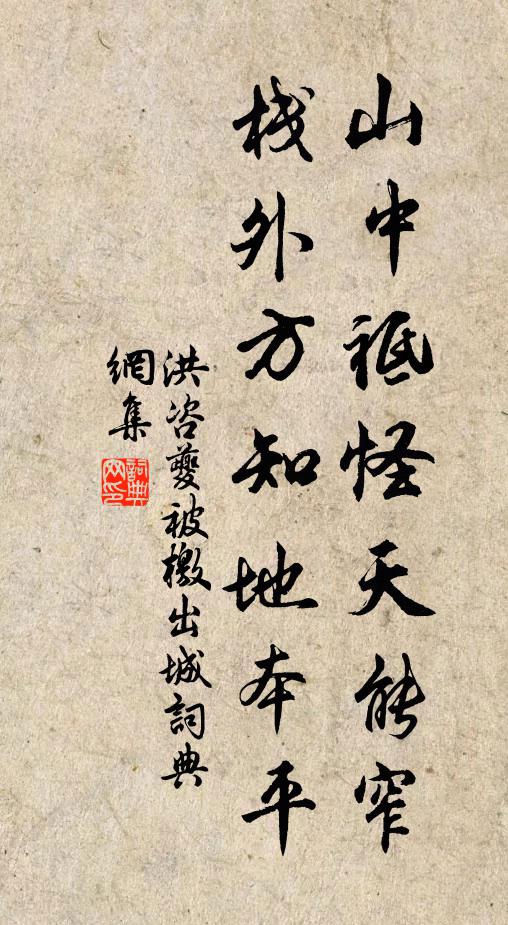 山中祗怪天能窄
栈外方知地本平
洪咨夔被檄出城詞典
網集
詞典
网印